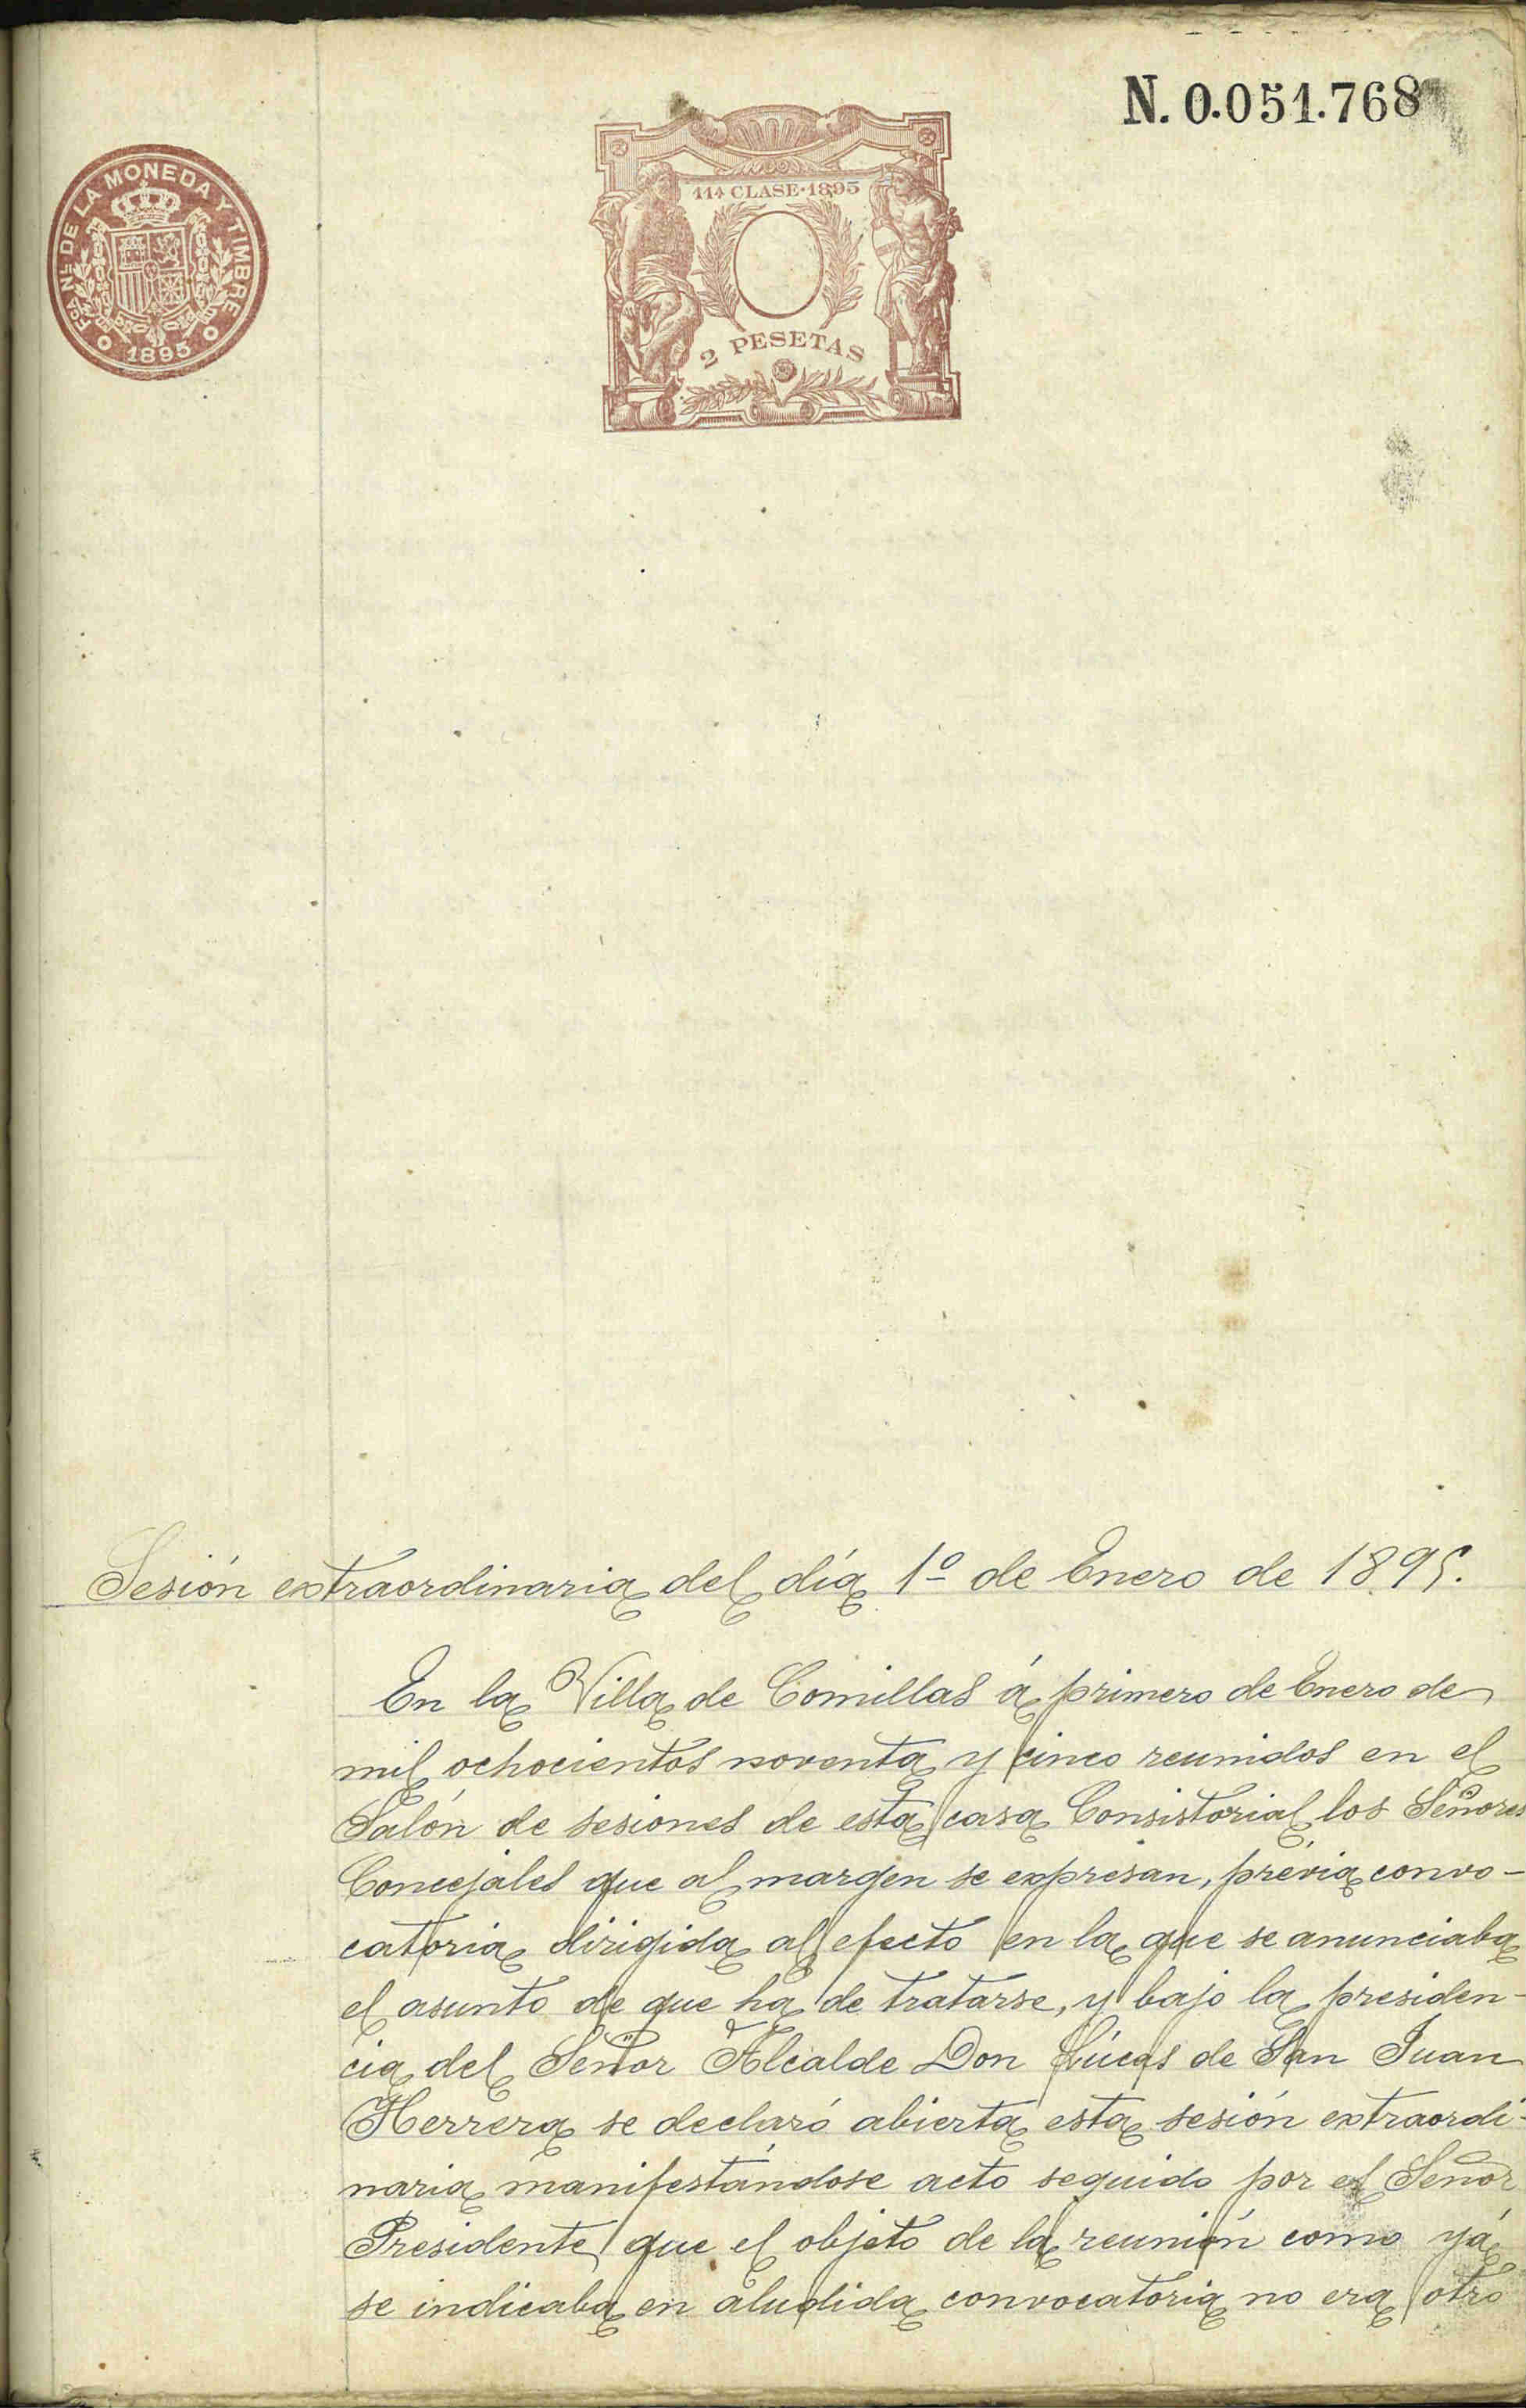 N. 0.051.768
FCA. NAL. DE LA MONEDA Y TIMBRE
1895
11ª CLASE·1895
2 PESETAS
Sesión extraordinaria del día 1º de Enero de 1895.
En la Villa de Comillas á primero de Enero de
mil ochocientos noventa y cinco reunidos en el
Salón de sesiones de esta casa Consistorial los Señores
Concejales que al margen se expresan, prévia convo-
catoria dirigida al efecto en la que se anunciaba
el asunto de que ha de tratarse, y bajo la presiden-
cia del Señor Alcalde Don Lúcas de San Juan
Herrera se declaró abierta esta sesión extraordi-
naria manifestándose acto seguido por el Señor
Presidente que el objeto de la reunión como yá
se indicaba en aludida convocatoria no era otro